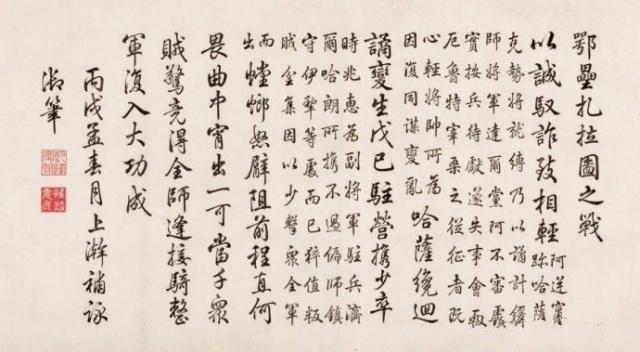 鄂壘扎拉圖之戰
以誠馭詐致相輕阿逆竄
跡哈薩
克勢將就縛乃以譎計緩
師將軍達爾黨阿不審虛
實按兵待獻遂失事會而
厄魯特宰桑之從征者既
心輕將帥所為
因復同謀變亂
哈薩纔迴
譎變生戊己駐營攜少卒
時兆惠為副將軍駐兵濟
爾哈朗所攜不過偏師鎮
守伊犂等處而已猝值叛
賊坌集因以少擊衆全軍
而出
螳螂怒臂阻前程直何
畏曲中宵出一可當千衆
賊驚竟得全師逢接騎整
軍復入大功成
丙戌孟春月上澣補詠
御筆